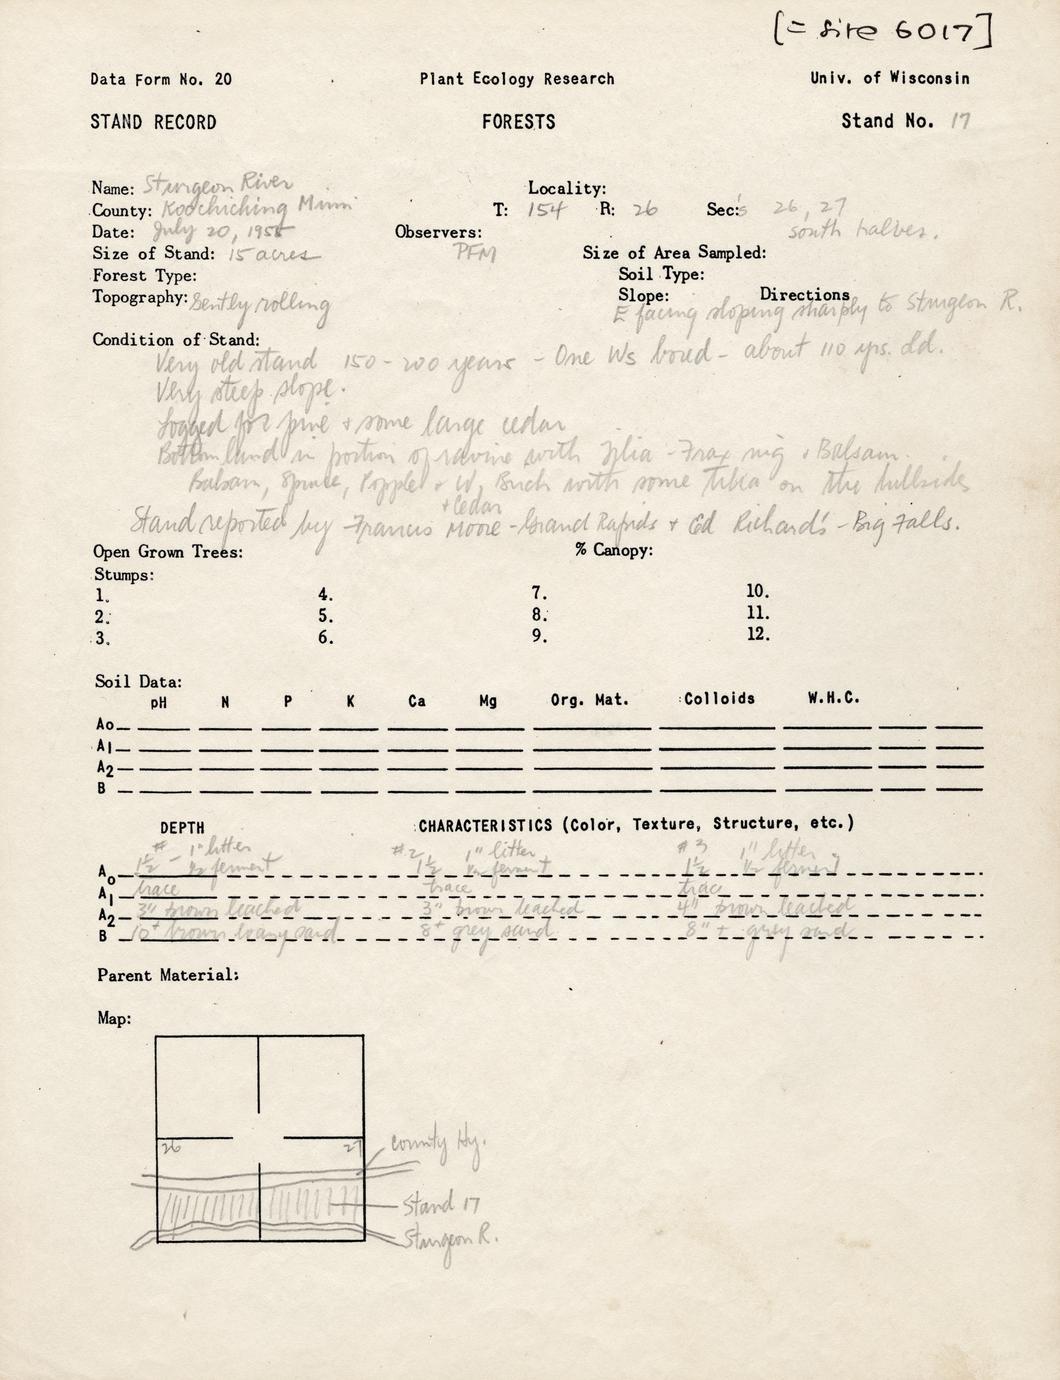 [= site 6017]
Data Form No. 20 Plant Ecology Research Univ. of Wisconsin
STAND RECORD FORESTS Stand No. 17
Name: Sturgeon River Locality:
County: Koochiching Minn T: 154 R: 26 Sec:s 26, 27
south halves.
Date: July 20, 1955 Observers: PFM
Size of Stand: 15 acres Size of Area Sampled:
Forest Type: Soil Type:
Topography: Gently rolling Slope: Directions
E facing sloping sharply to Sturgeon R.
Condition of Stand:
Very old stand 150-200 years - One Ws bored - about 110 yrs. old.
Very steep slope.
Logged for pine + some large cedar
Bottom land in portion of ravine with Tilia - Frax nig + Balsam.
Balsam, Spruce, Popple + W. Birch with some tilia on the hillsides
+ Cedar
Stand reported by Francis Moore - Grand Rapids + Ed Richard's - Big Falls.
Open Grown Trees: % Canopy:
Stumps:
1. 4. 7. 10.
2. 5. 8. 11.
3. 6. 9. 12.
Soil Data:
pH N P K Ca Mg Org. Mat. Colloids W.H.C.
Ao
A1
A2
B
DEPTH CHARACTERISTICS (Color, Texture, Structure, etc.)
# 1" litter #2 1" litter #3 1" litter
Ao 1½ - ½ ferment 1½ ½ ferment 1½ ½ ferment
A1 trace trace trac
A2 3" brown leached 3" brown leached 4" brown leached
B 10+ brown loamy sand 8+ grey sand 8"+ grey sand
Parent Material:
Map:
26 27 county Hy.
Stand 17
Sturgeon R.